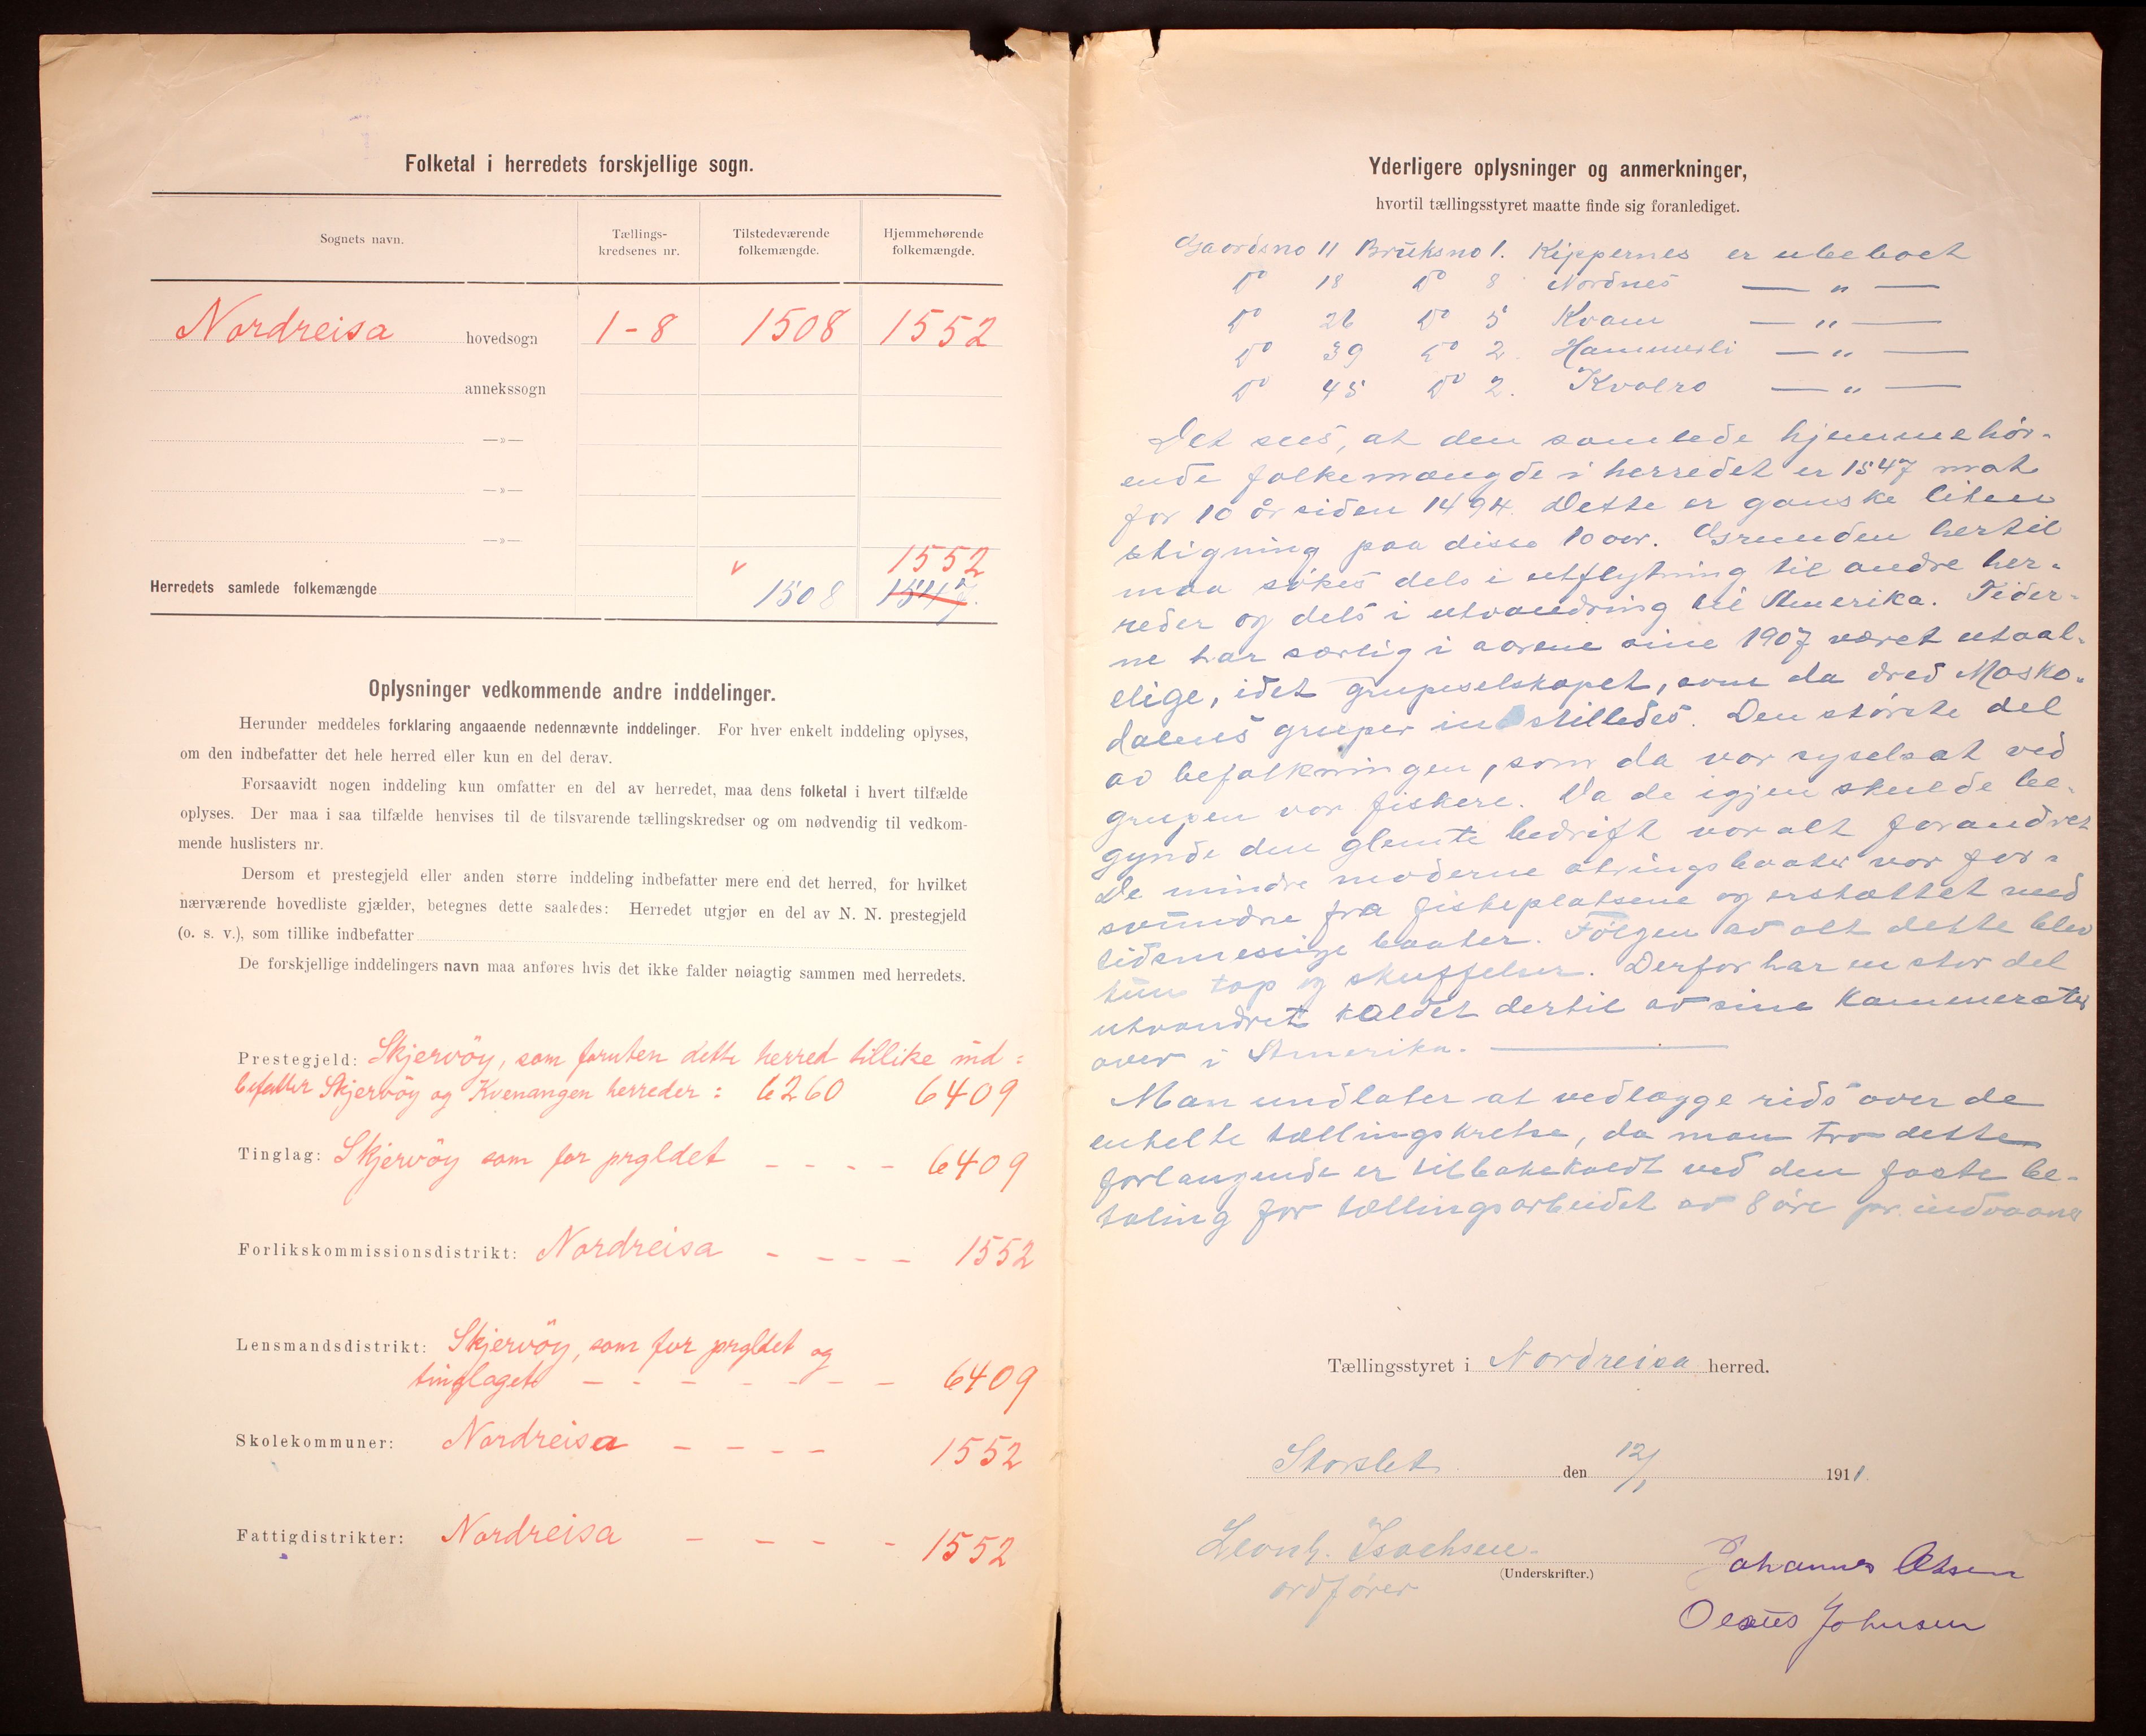 Folketal i herredets forskjellige sogn.
Sognets navn.
Tællings-
kredsenes nr.
Tilstedeværende
folkemængde.
Hjemmehørende
folkemængde.
Nordreisa hovedsogn 1-8 1508 1552
annekssogn
—»—
—»—
—»—
1552
Herredets samlede folkemængde 1508 1547.
Oplysninger vedkommende andre inddelinger.
Herunder meddeles forklaring angaaende nedennævnte inddelinger. For hver enkelt inddeling oplyses,
om den indbefatter det hele herred eller kun en del derav.
Forsaavidt nogen inddeling kun omfatter en del av herredet, maa dens folketal i hvert tilfælde
oplyses. Der maa i saa tilfælde henvises til de tilsvarende tællingskredser og om nødvendig til vedkom-
mende huslisters nr.
Dersom et prestegjeld eller anden større inddeling indbefatter mere end det herred, for hvilket
nærværende hovedliste gjælder, betegnes dette saaledes: Herredet utgjør en del av N. N. prestegjeld
(o. s. v.), som tillike indbefatter
De forskjellige inddelingers navn maa anføres hvis det ikke falder nøiagtig sammen med herredets.
Prestegjeld: Skjervöy, som foruten dette herred tillike ind=
befatter Skjervöy og Kvenangen herreder: 6260 6409
Tinglag: Skjervöy som for prgldet - - - - 6409
Forlikskommissionsdistrikt: Nordreisa - - - - 1552
Lensmandsdistrikt: Skjervöy, som for prgldet og
tinglaget - - - - - - - 6409
Skolekommuner: Nordreisa - - - - 1552
Fattigdistrikter: Nordreisa - - - - 1552
Yderligere oplysninger og anmerkninger,
hvortil tællingsstyret maatte finde sig foranlediget.
Gaardsno 11 Bruksno 1. Kippernes er ubeboet
Do 18 Do 8 Nordnes — „ —
Do 26 Do 5 Kvam — „ —
Do 39 Do 2. Hammerli — „ —
Do 45 Do 2. — „ —
Det sees, at den samlede hjemmehör-
ende folkemængde i herredet er 1547 mot
for 10 år siden 1494. Dette er ganske liten
stigning paa disse 10 aar. Grunden hertil
maa sökes dels i utflytning til andre her-
reder og dels i utvandring til Amerika. Tider-
ne har særlig i aarene sine 1907 været utaal-
elige, idet grupeselskapet, som da dred Mosko-
dalens gruper indstilledes. Den störste del
av befolkningen, som da var syselsat ved
grupen var fiskere. Da de igjen skulde be-
gynde den glemte bedrift var alt forandret
De mindre moderne baater var for-
svundne fra fiskeplatsene og erstattet med
tidsmessige baater. Fölgen av alt dette blev
kun tap og skuffelser. Derfor har en stor del
utvandret kaldet dertil av sine kammerater
over i Amerika. —
Man undlater at vedlægge rids over de
enkelte tællingskretse, da man tror dette
forlangende er tilbakekaldt ved den faste be-
taling for tællingsarbeidet av 8 öre pr. indvaaner
Tællingsstyret i Nordreisa herred.
Storslet den 12/1 1911.
Leonh. Isachsen.
ordförer
(Underskrifter.)
Johannes Olsen
Olaus Johnsen